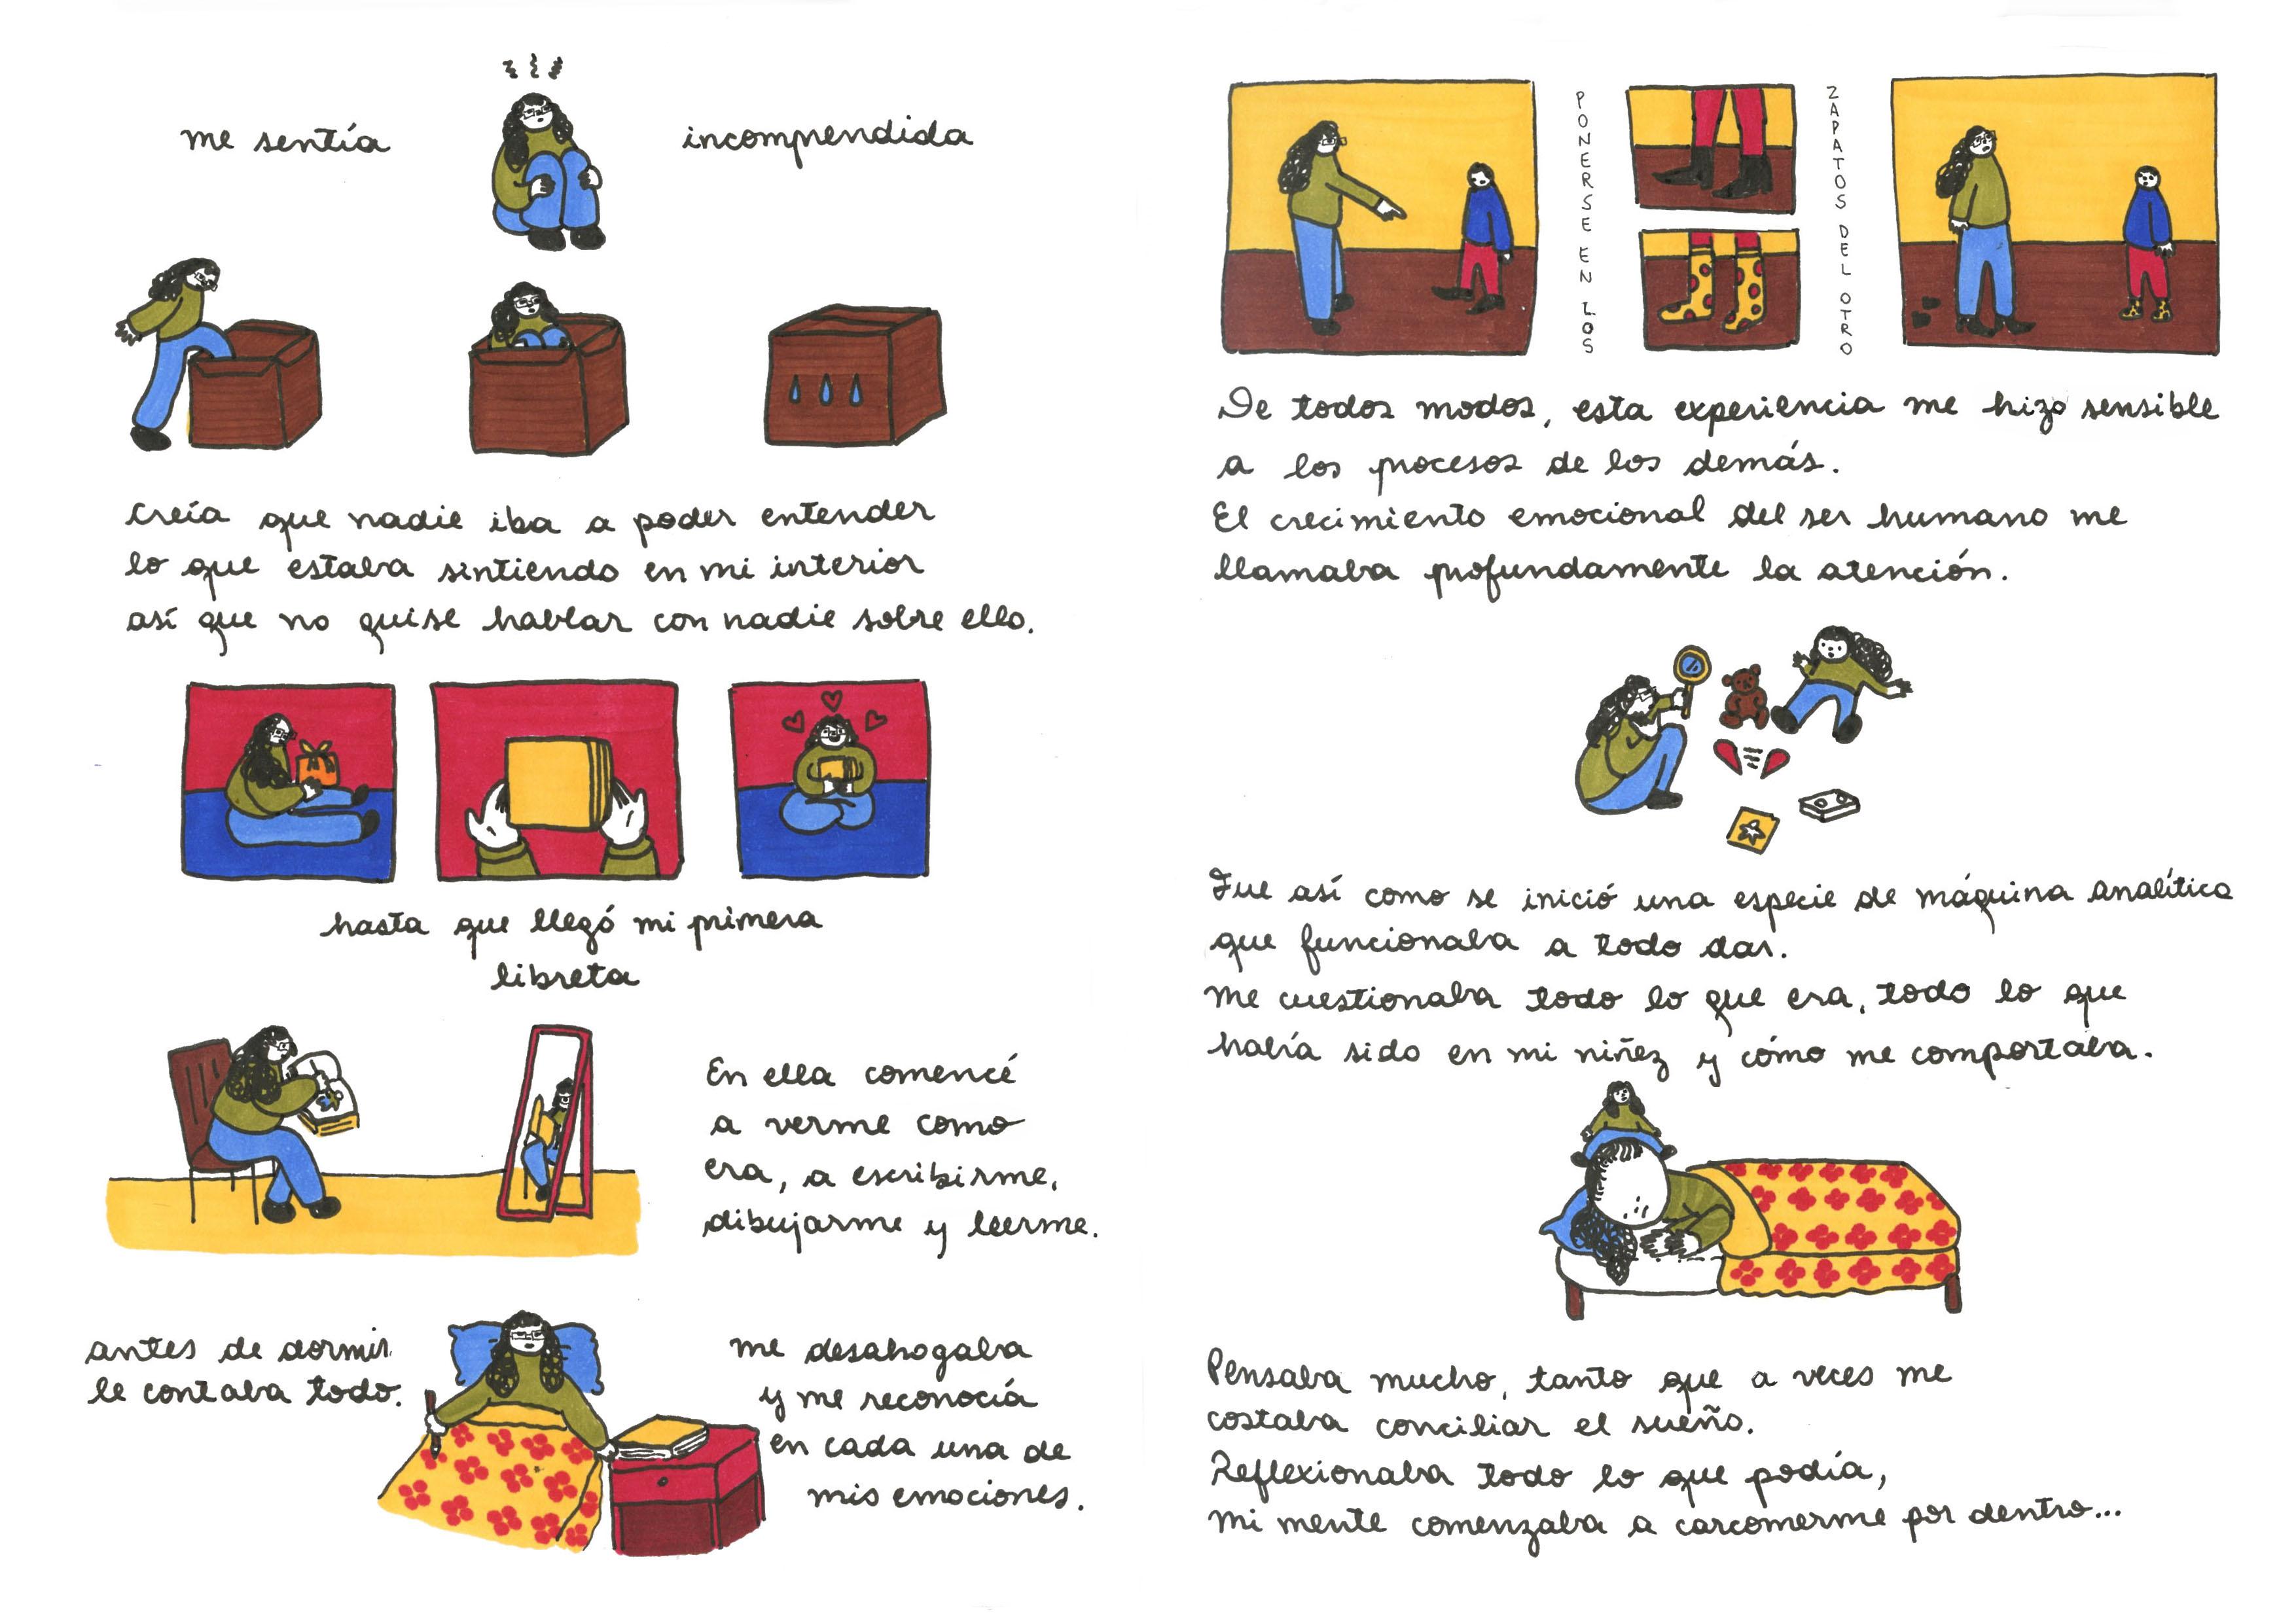 me sentía incomprendida
creía que nadie iba a poder entender
lo que estaba sintiendo en mi interior
así que no quise hablar con nadie sobre ello.
hasta que llegó mi primera
libreta
En ella comencé
a verme como
era, a escribirme,
dibujarme y leerme.
antes de dormir
le contaba todo.
me desahogaba
y me reconocía
en cada una de
mis emociones.
PONERSE EN LOS
ZAPATOS DEL OTRO
De todos modos, esta experiencia me hizo sensible
a los procesos de los demás.
El crecimiento emocional del ser humano me
llamaba profundamente la atención.
Fue así como se inició una especie de máquina analítica
que funcionaba a todo dar.
Me cuestionaba todo lo que era, todo lo que
había sido en mi niñez y cómo me comportaba.
Pensaba mucho, tanto que a veces me
costaba conciliar el sueño.
Reflexionaba todo lo que podía,
mi mente comenzaba a carcomerme por dentro...